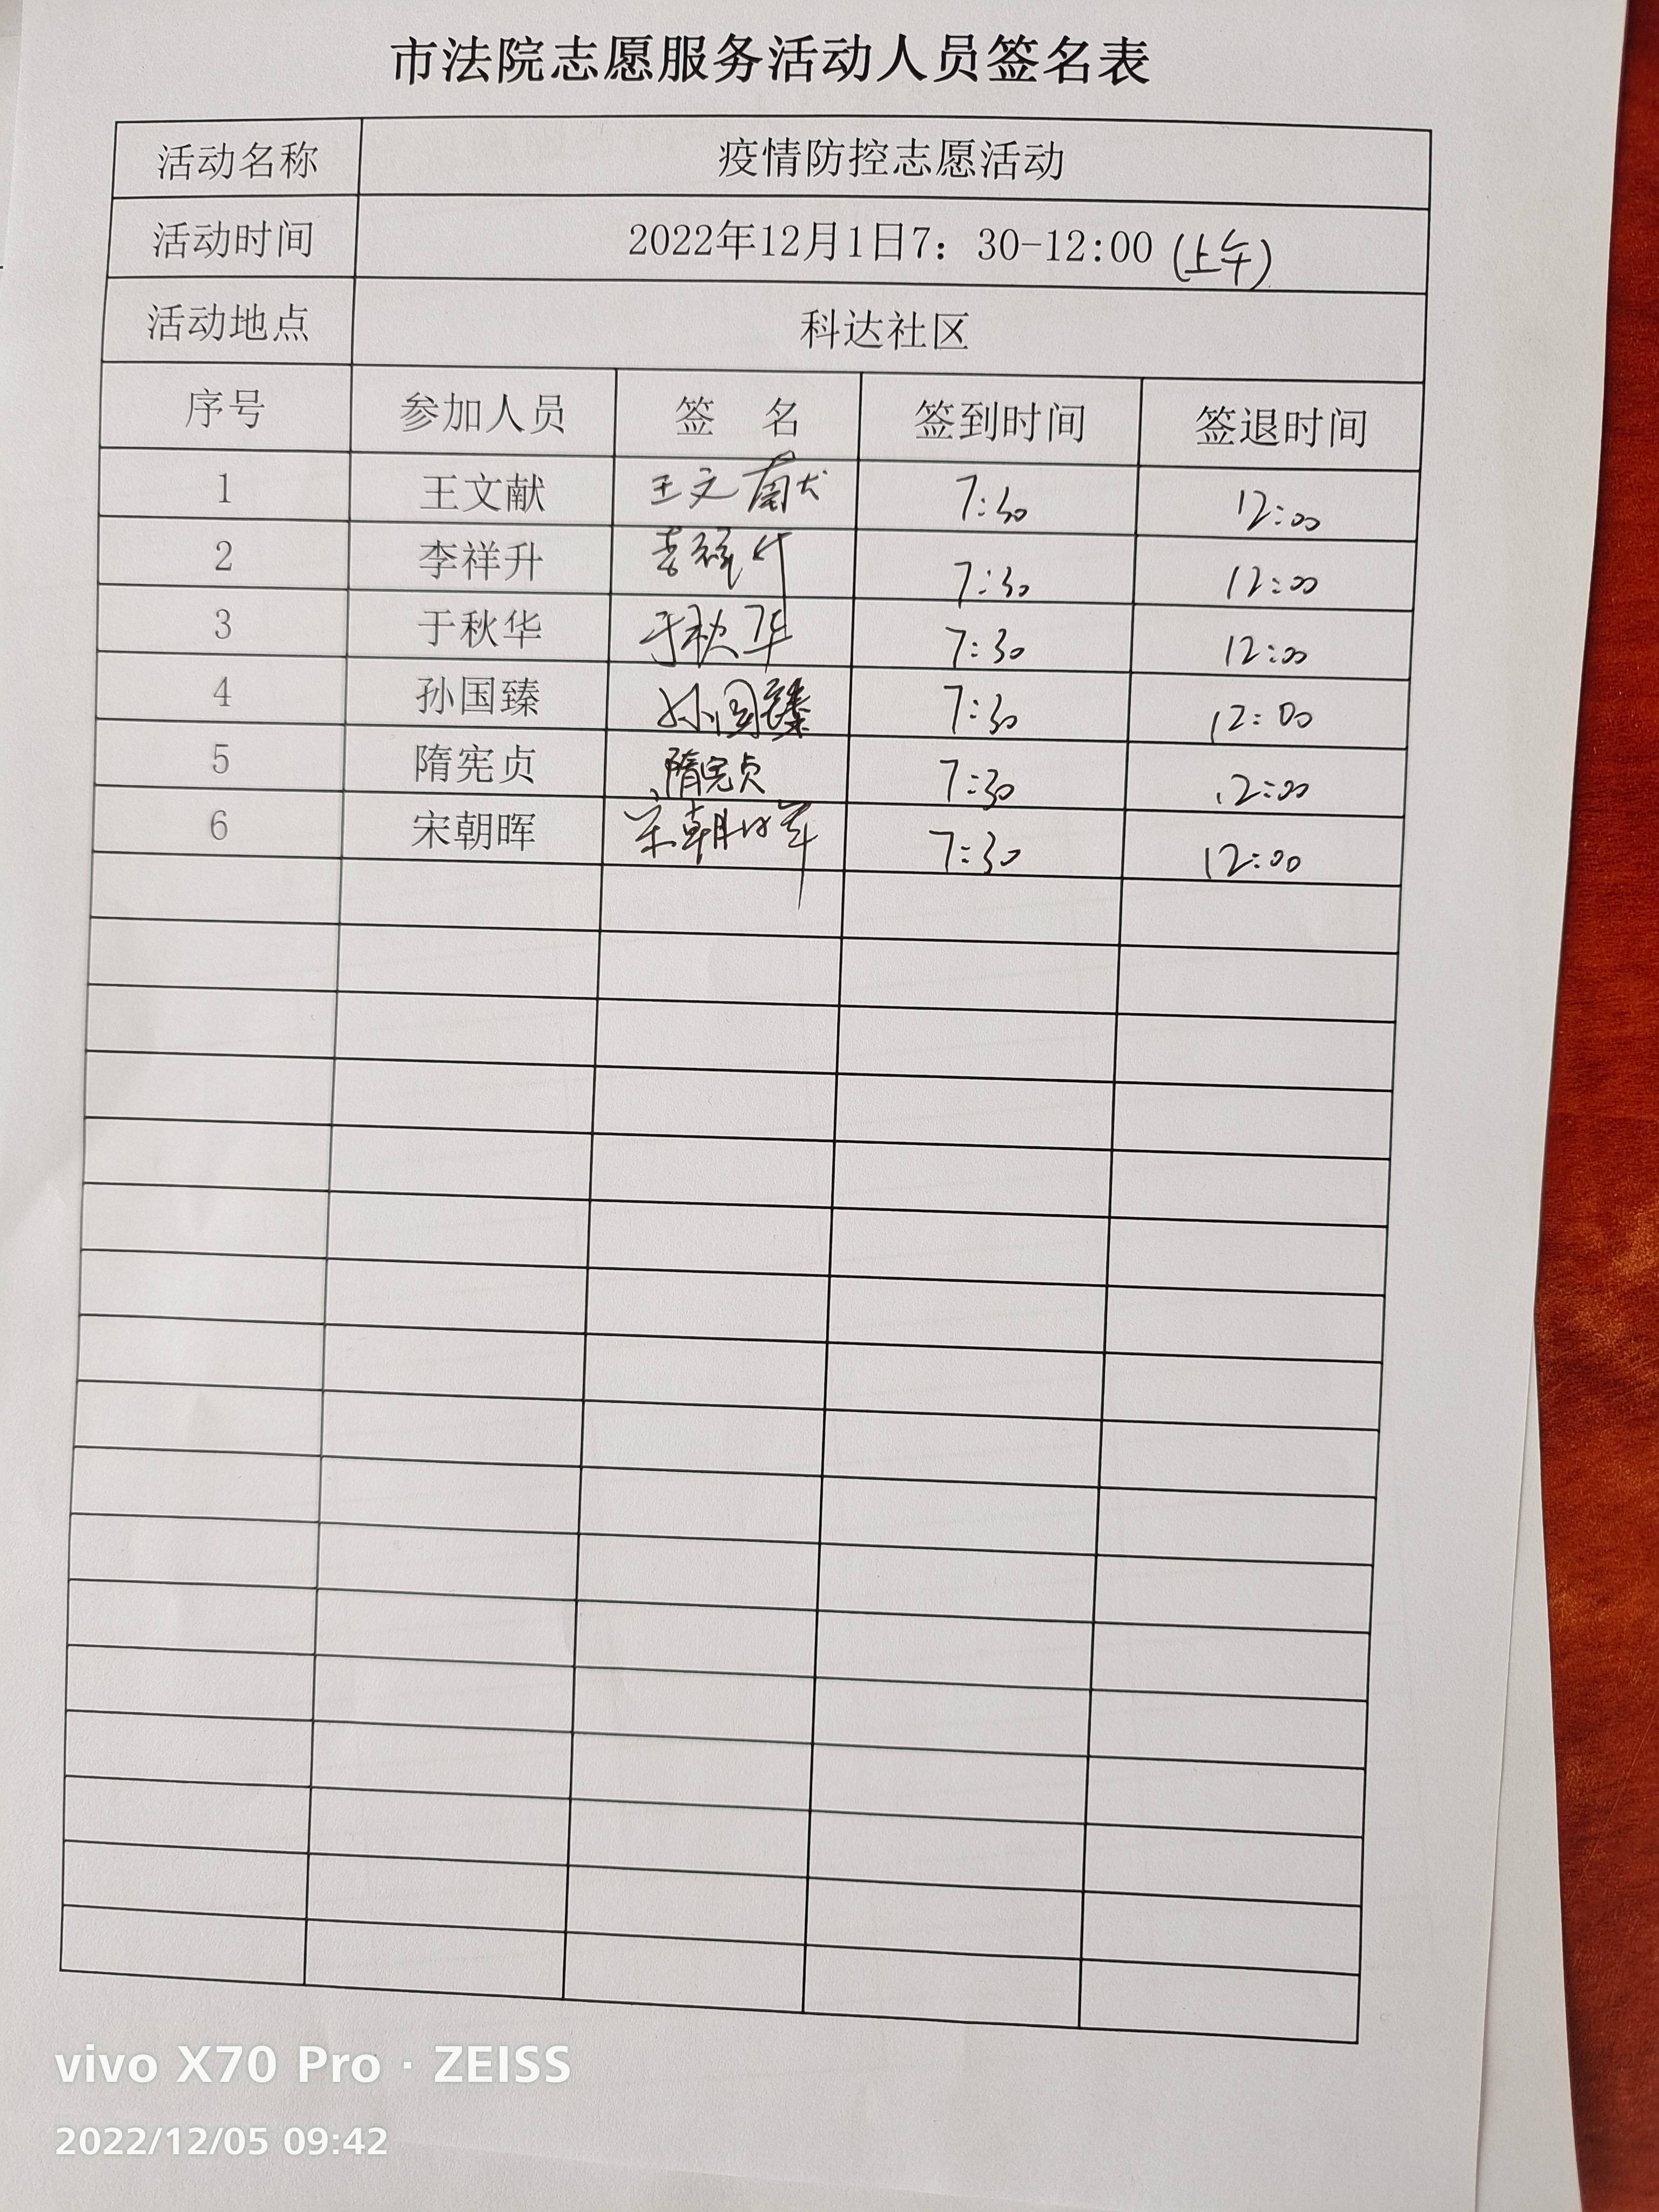 市法院志愿服务活动人员签名表
活动名称 疫情防控志愿活动
活动时间 2022年12月1日7：30-12:00 (上午)
活动地点 科达社区
序号 参加人员 签 名 签到时间 签退时间
1 王文献 王文献 7:30 12:00
2 李祥升 李祥升 7:30 12:00
3 于秋华 于秋华 7:30 12:00
4 孙国臻 孙国臻 7:30 12:00
5 隋宪贞 隋宪贞 7:30 12:00
6 宋朝晖 宋朝晖 7:30 12:00
vivo X70 Pro · ZEISS
2022/12/05 09:42